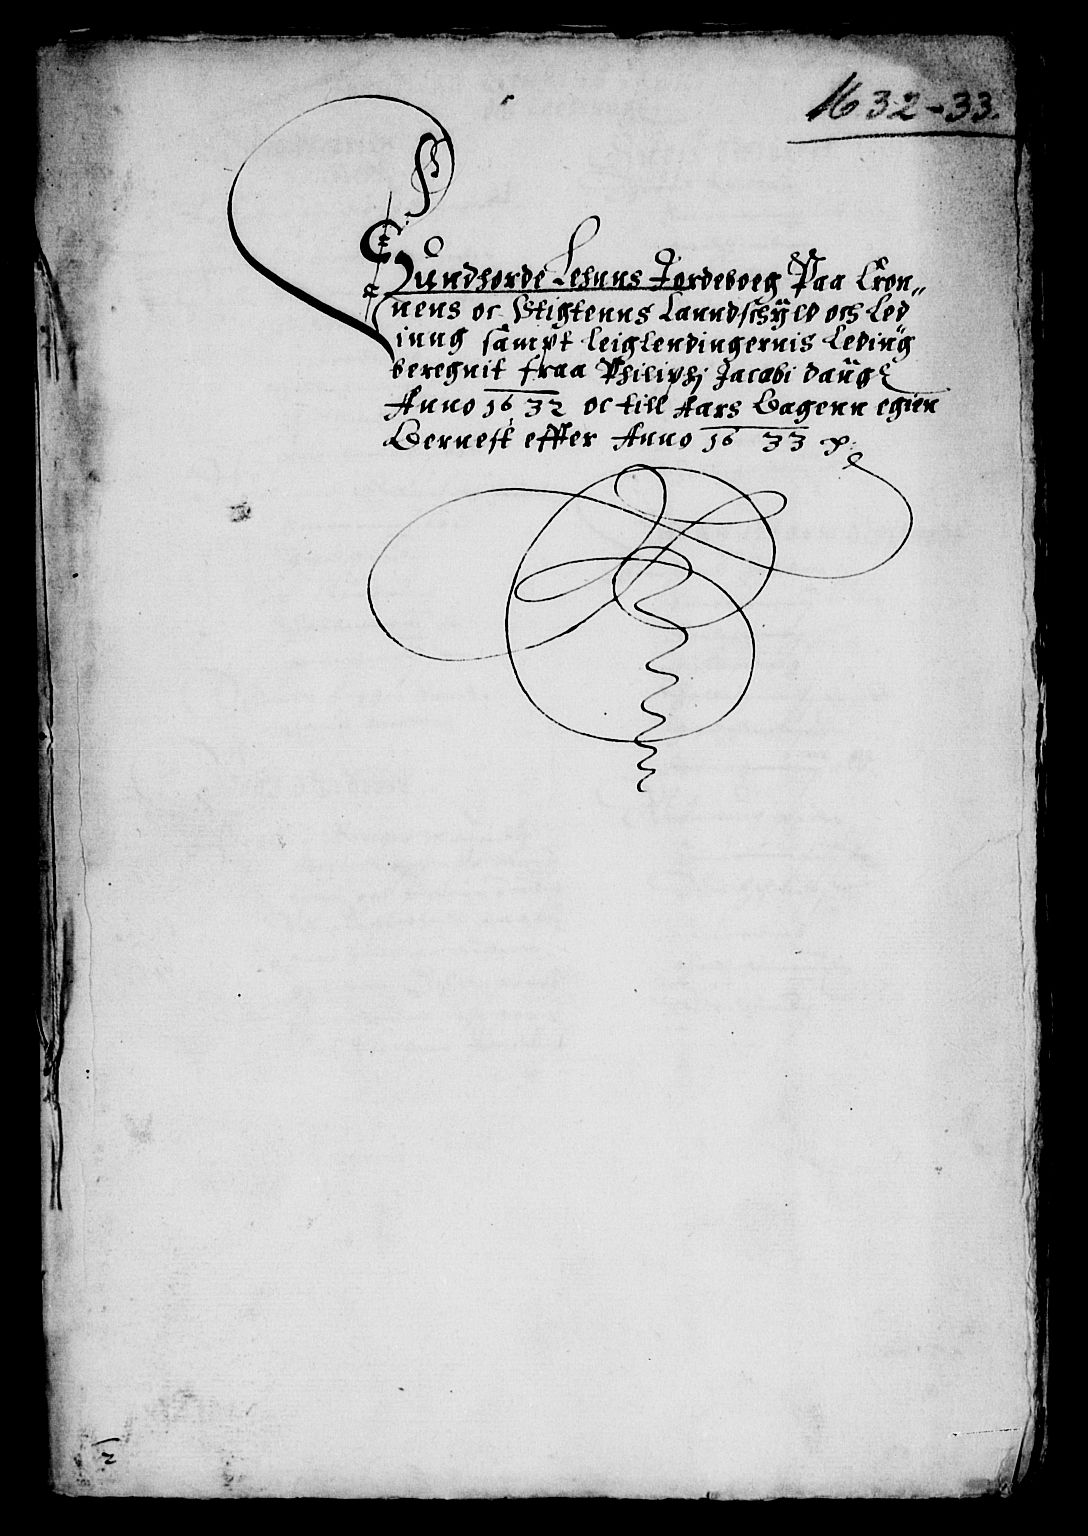 1632-33.
Sundhorde Lehnns Jordeboeg Paa Cron„
nens oc Stigtenns Lanndschÿld och Led
inng sampt leiglendingernis Leding
beregnit fraa Philiphj Jacobi daug
Anno 1632 oc till Aars Dagenn egien
Bernest effter Anno 1633
2